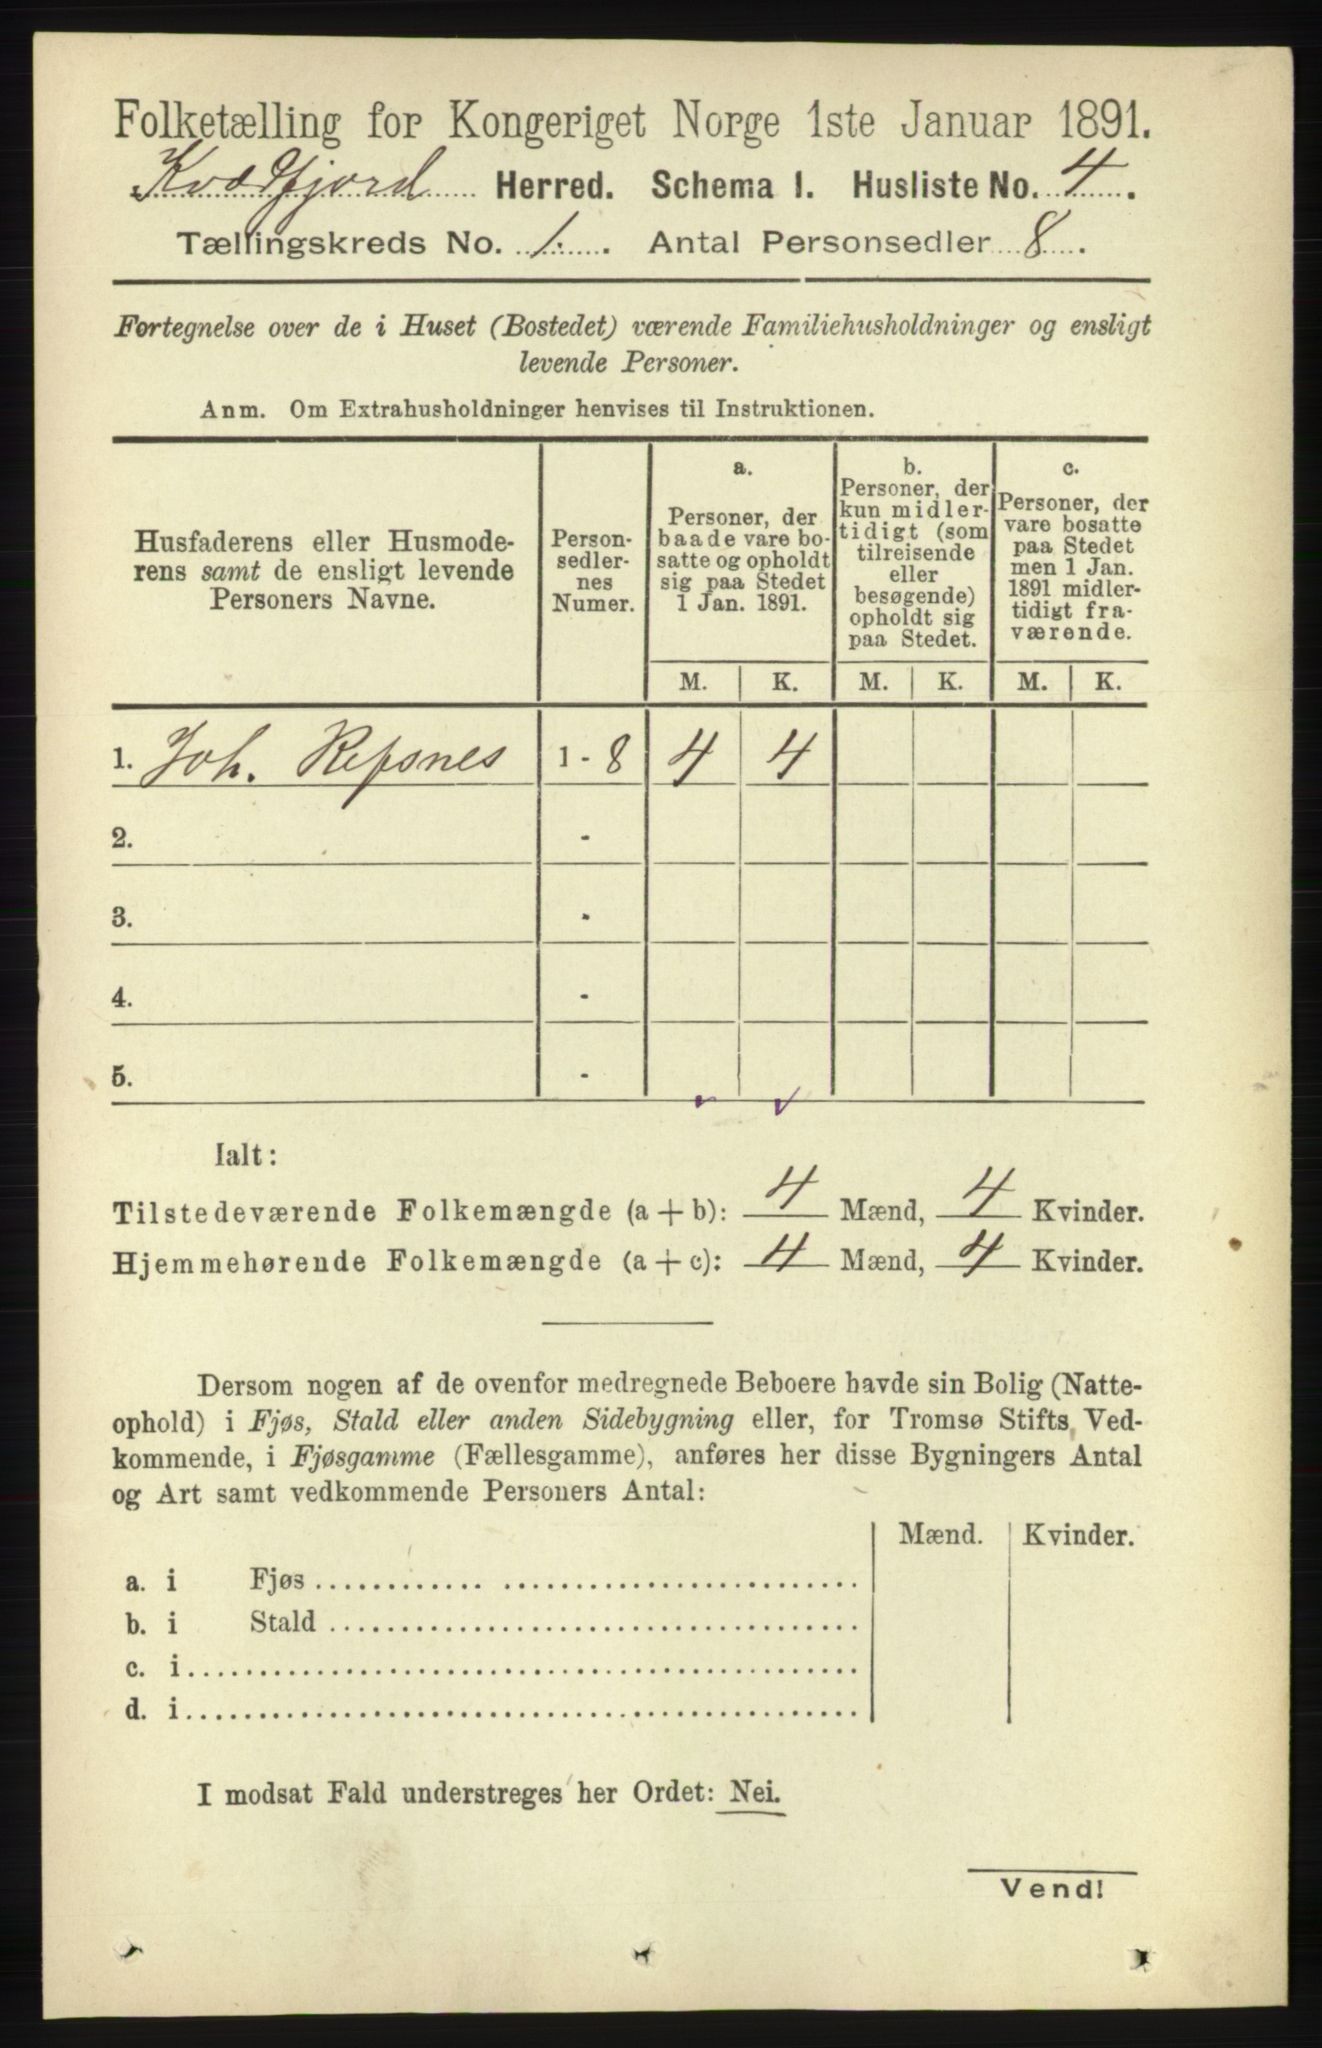 Folketælling for Kongeriget Norge 1ste Januar 1891.
Kvædfjord Herred. Schema 1. Husliste No. 4.
Tællingskreds No. 1. Antal Personsedler 8.
Fortegnelse over de i Huset (Bostedet) værende Familiehusholdninger og ensligt
levende Personer.
Anm. Om Extrahusholdninger henvises til Instruktionen.
Husfaderens eller Husmode-
rens samt de ensligt levende
Personers Navne.
Person-
sedler-
nes
Numer.
a.
Personer, der
baade vare bo-
satte og opholdt
sig paa Stedet
1 Jan. 1891.
b.
Personer, der
kun midler-
tidigt (som
tilreisende
eller
besøgende)
opholdt sig
paa Stedet.
c.
Personer, der
vare bosatte
paa Stedet
men 1 Jan.
1891 midler-
tidigt fra-
værende.
M. K. M. K. M. K.
1. Joh. Refsnes 1 - 8 4 4
2. -
3. -
4. -
5. -
Ialt:
Tilstedeværende Folkemængde (a + b): 4 Mænd, 4 Kvinder.
Hjemmehørende Folkemængde (a + c): 4 Mænd, 4 Kvinder.
Dersom nogen af de ovenfor medregnede Beboere havde sin Bolig (Natte-
ophold) i Fjøs, Stald eller anden Sidebygning eller, for Tromsø Stifts Ved-
kommende, i Fjøsgamme (Fællesgamme), anføres her disse Bygningers Antal
og Art samt vedkommende Personers Antal:
Mænd. Kvinder.
a. i Fjøs
b. i Stald
c. i
d. i
I modsat Fald understreges her Ordet: Nei.
Vend!